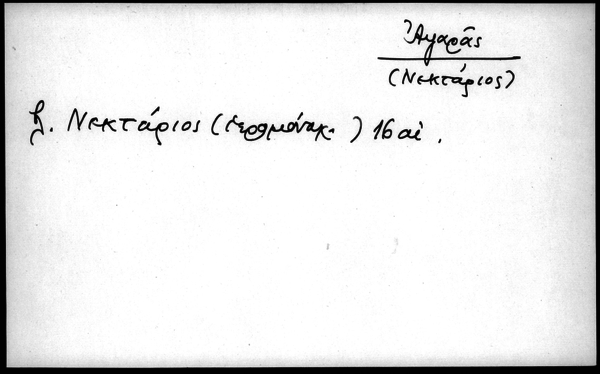 Ἀγαρᾶς
(Νεκτάριος)
βλ. Νεκτάριος (ἱερομόναχ. ) 16 αἰ.